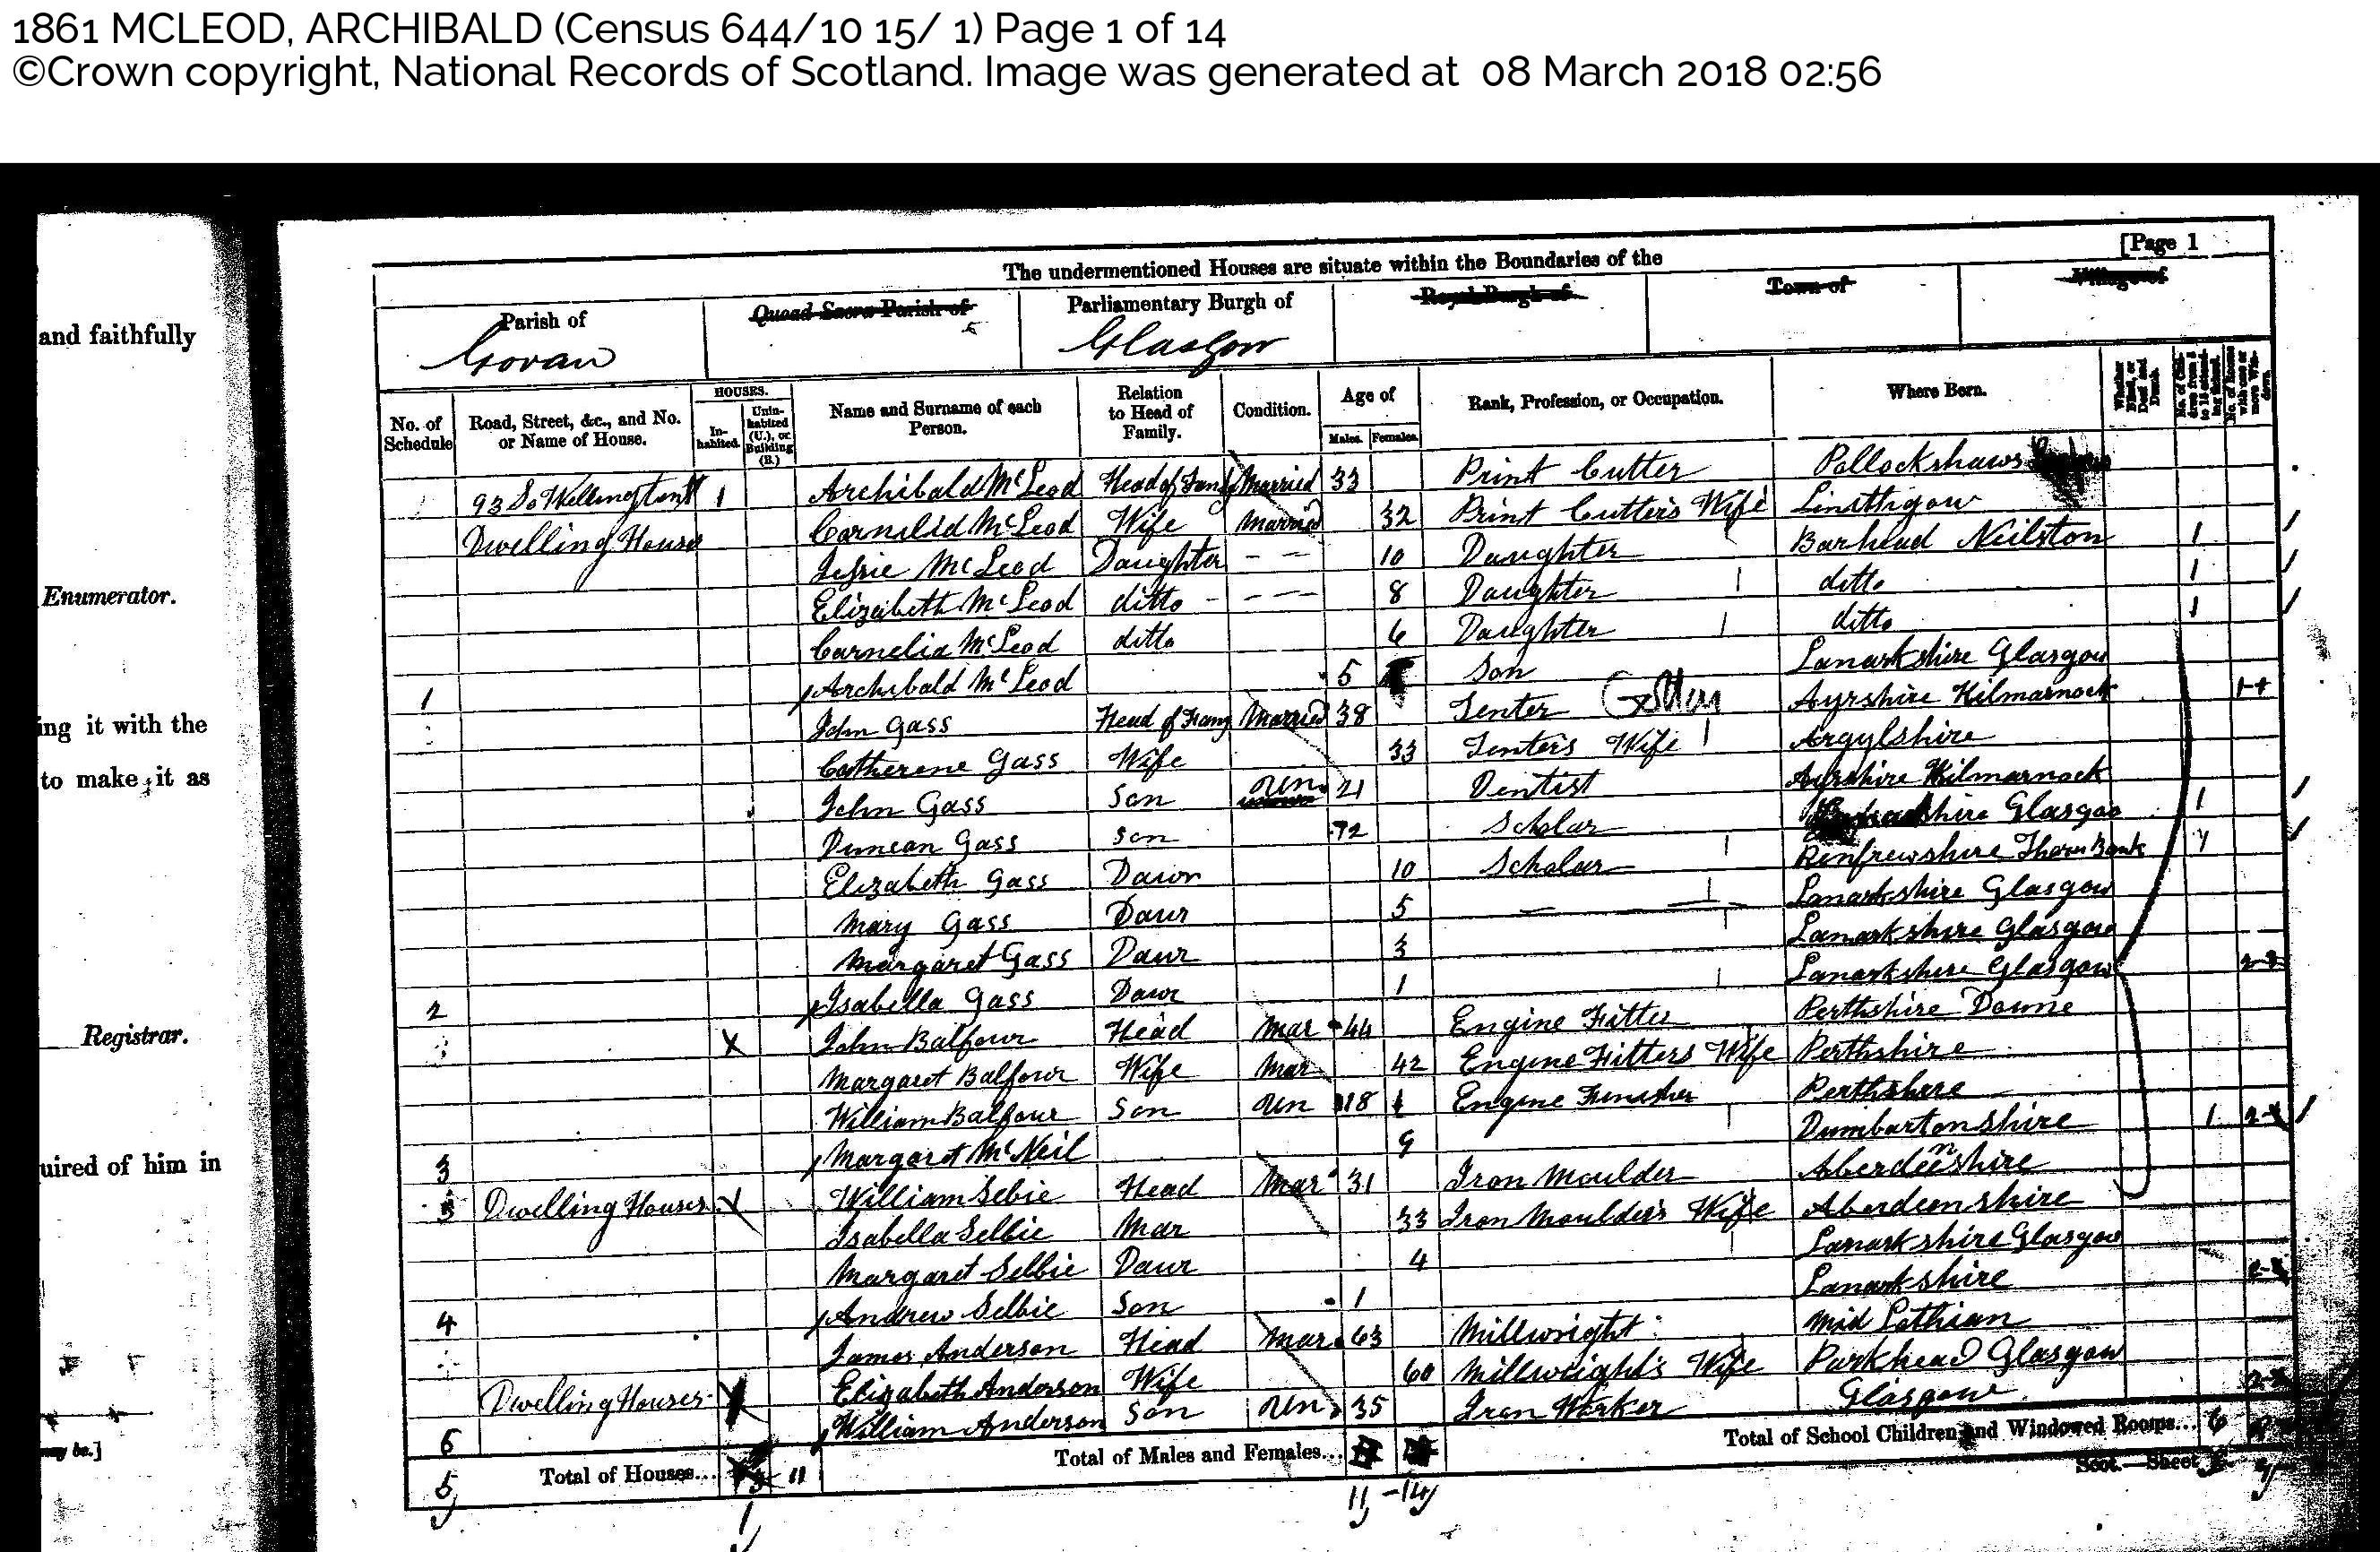 1861 MCLEOD, ARCHIBALD (Census 644/10 15/ 1) Page 1 of 14
©Crown copyright, National Records of Scotland. Image was generated at 08 March 2018 02:56
[Page 1
The undermentioned Houses are situate within the Boundaries of the
Parish of Quoad Sacra Parish of Parliamentary Burgh of Royal Burgh of Town of Village of
Govan Glasgow
No. of Schedule Road, Street, &c., and No. or Name of House. HOUSES. In-habited. Unin-habited (U.), or Building (B.) Name and Surname of each Person. Relation to Head of Family. Condition. Age of Males. Females. Rank, Profession, or Occupation. Where Born. Whether Blind, or Deaf and Dumb. No. of Chil-dren from 5 to 15 attend-ing School. No. of Rooms with one or more Win-dows.
93 So Wellington St 1 Archibald McLeod Head of Famy Married 33 Print Cutter Pollockshaws
Dwelling House Cornelid McLeod Wife Married 32 Print Cutters Wife Linlithgow
Jessie McLeod Daughter 10 Daughter Barhead Neilston 1
Elizabeth McLeod ditto 8 Daughter ditto 1
Cornelia McLeod ditto 6 Daughter ditto 1
1 Archibald McLeod 5 Son Lanarkshire Glasgow
John Gass Head of Famy Married 38 Tenter Ayrshire Kilmarnock
Catherene Gass Wife 33 Tenters Wife Argylshire
John Gass Son Un 21 Dentist Ayrshire Kilmarnock
Duncan Gass Son 12 Scholar Glasgoo 1
Elizabeth Gass Dawr 10 Scholar Renfrewshire Thorn Bank 1
Mary Gass Dawr 5 Lanarkshire Glasgow
Margaret Gass Dawr 3 Lanarkshire Glasgow
2 Isabella Gass Dawr 1 Lanarkshire Glasgow
John Balfour Head Mar 44 Engine Fitter Perthshire Doune
Margaret Balfour Wife Mar 42 Engine Fitters Wife Perthshire
William Balfour Son Un 18 Engine Finisher Perthshire
3 Margaret McNeil 9 Dumbartonshire 1
3 Dwelling Houses William Selbie Head Mar 31 Iron Moulder Aberdeenshire
Isabella Selbie Mar 33 Iron Moulder's Wife Aberdeenshire
Margaret Selbie Dawr 4 Lanarkshire Glasgow
4 Andrew Selbie Son 1 Lanarkshire
James Anderson Head Mar 63 Millwright Mid Lothian
Dwelling Houses Elizabeth Anderson Wife 60 Millwright's Wife Parkhead Glasgow
William Anderson Son Un 35 Iron Worker Glasgow
5 Total of Houses... 11 Total of Males and Females... Total of School Children and Windowed Rooms... 6
Scot.—Sheet
1 11 -14
and faithfully
Enumerator.
ing it with the
to make it as
Registrar.
uired of him in
may be.]